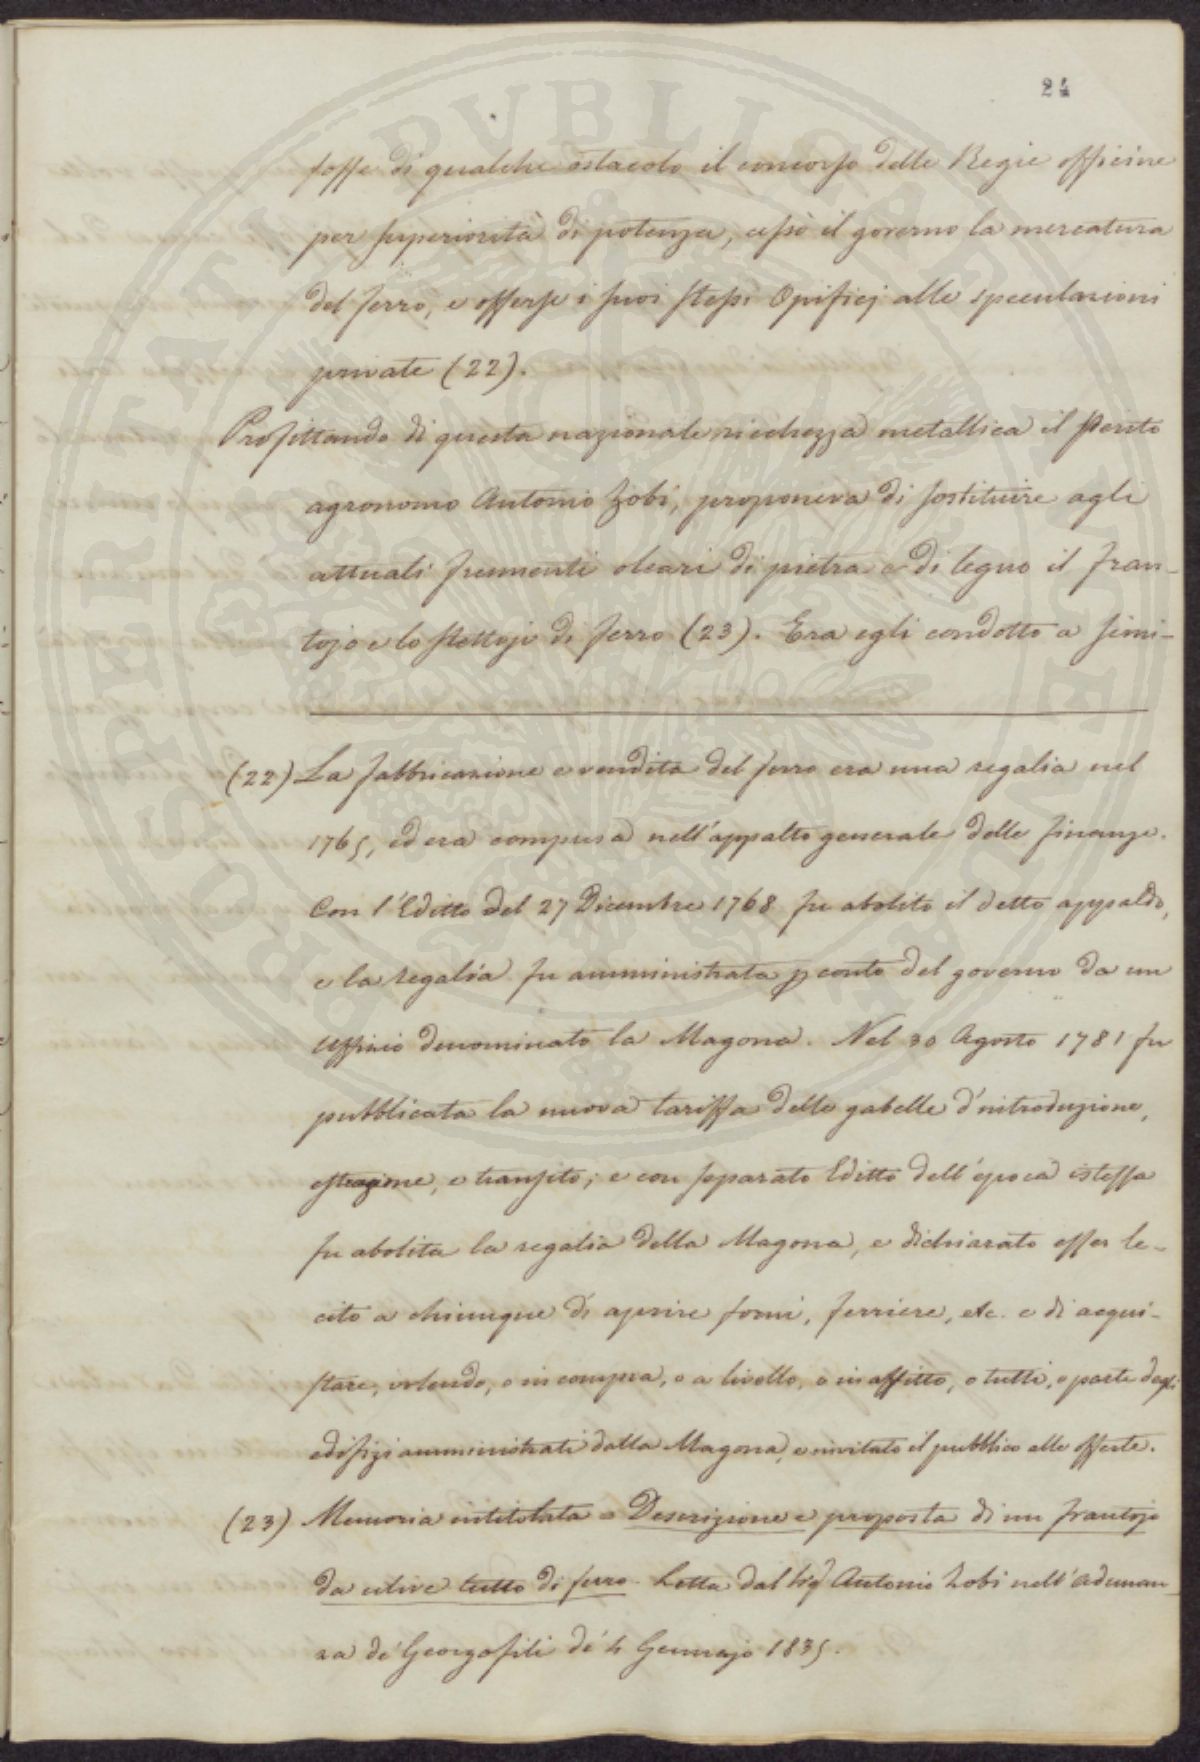 24
fosse di qualche ostacolo il concorso delle Regie officine
per superiorità di potenza, cessò il governo la mercatura
del ferro, e offerse i suoi stessi Opificj alle speculazioni
private (22).
Profittando di questa nazionale ricchezza metallica il Perito
agronomo Antonio Zobi, proponeva di sostituire agli
attuali strumenti oleari di pietra e di legno il fran-
tojo e lo strettojo di ferro (23). Era egli condotto a simi-
(22) La fabbricazione e vendita del ferro era una regalia nel
1765, ed era compresa nell'appalto generale delle finanze.
Con l'Editto del 27 Dicembre 1768 fu abolito il detto appaldo,
e la regalia fu amministrata p conto del governo da un
Uffizio denominato la Magona. Nel 30 Agosto 1781 fu
pubblicata la nuova tariffa delle gabelle d'introduzione,
estrazione, e transito; e con separato Editto dell'epoca istessa
fu abolita la regalia della Magona, e dichiarato esser le-
cito a chiunque di aprire forni, ferriere, etc. e di acqui-
stare, volendo, o in compra, o a livello, o in affitto, o tutti, o parte degli
edifizi amministrati dalla Magona, e invitato il pubblico alle offerte.
(23) Memoria intitolata = Descrizione e proposta di un frantojo
da ulive tutto di ferro. Letta dal Sig Antonio Zobi nell'adunan-
za de' Georgofili de' 4 Gennajo 1835.
PROSPERITATI PVBLICAE AVGENDAE